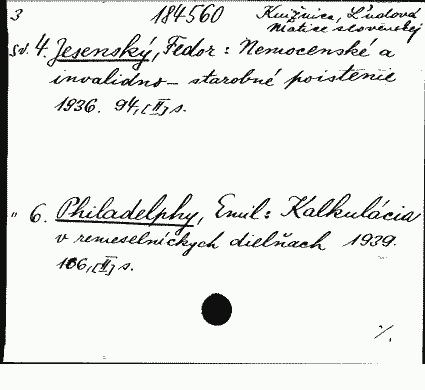 3 184560 Knižnica, Ľudová
Matice slovenskej
sv. 4. Jesenský, Fedor: Nemocenské a
invalidno- starobné poistenie
1936. 94, [II] s.
" 6. Philadelphy, Emil: Kalkulácia
v remeselníckych dielňach 1939.
106, [II] s.
./.